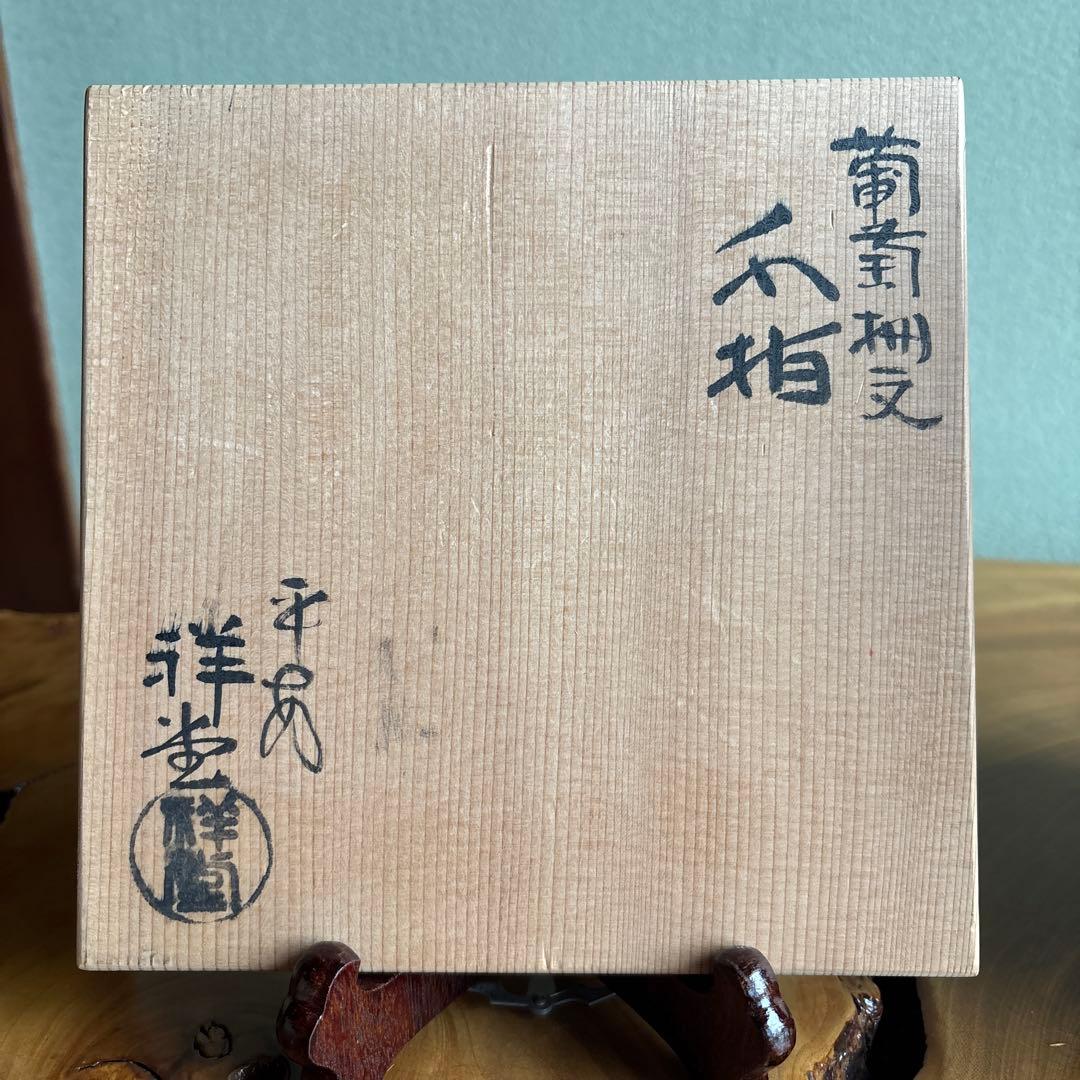 葡萄棚文
水指
平安
祥堂
祥堂